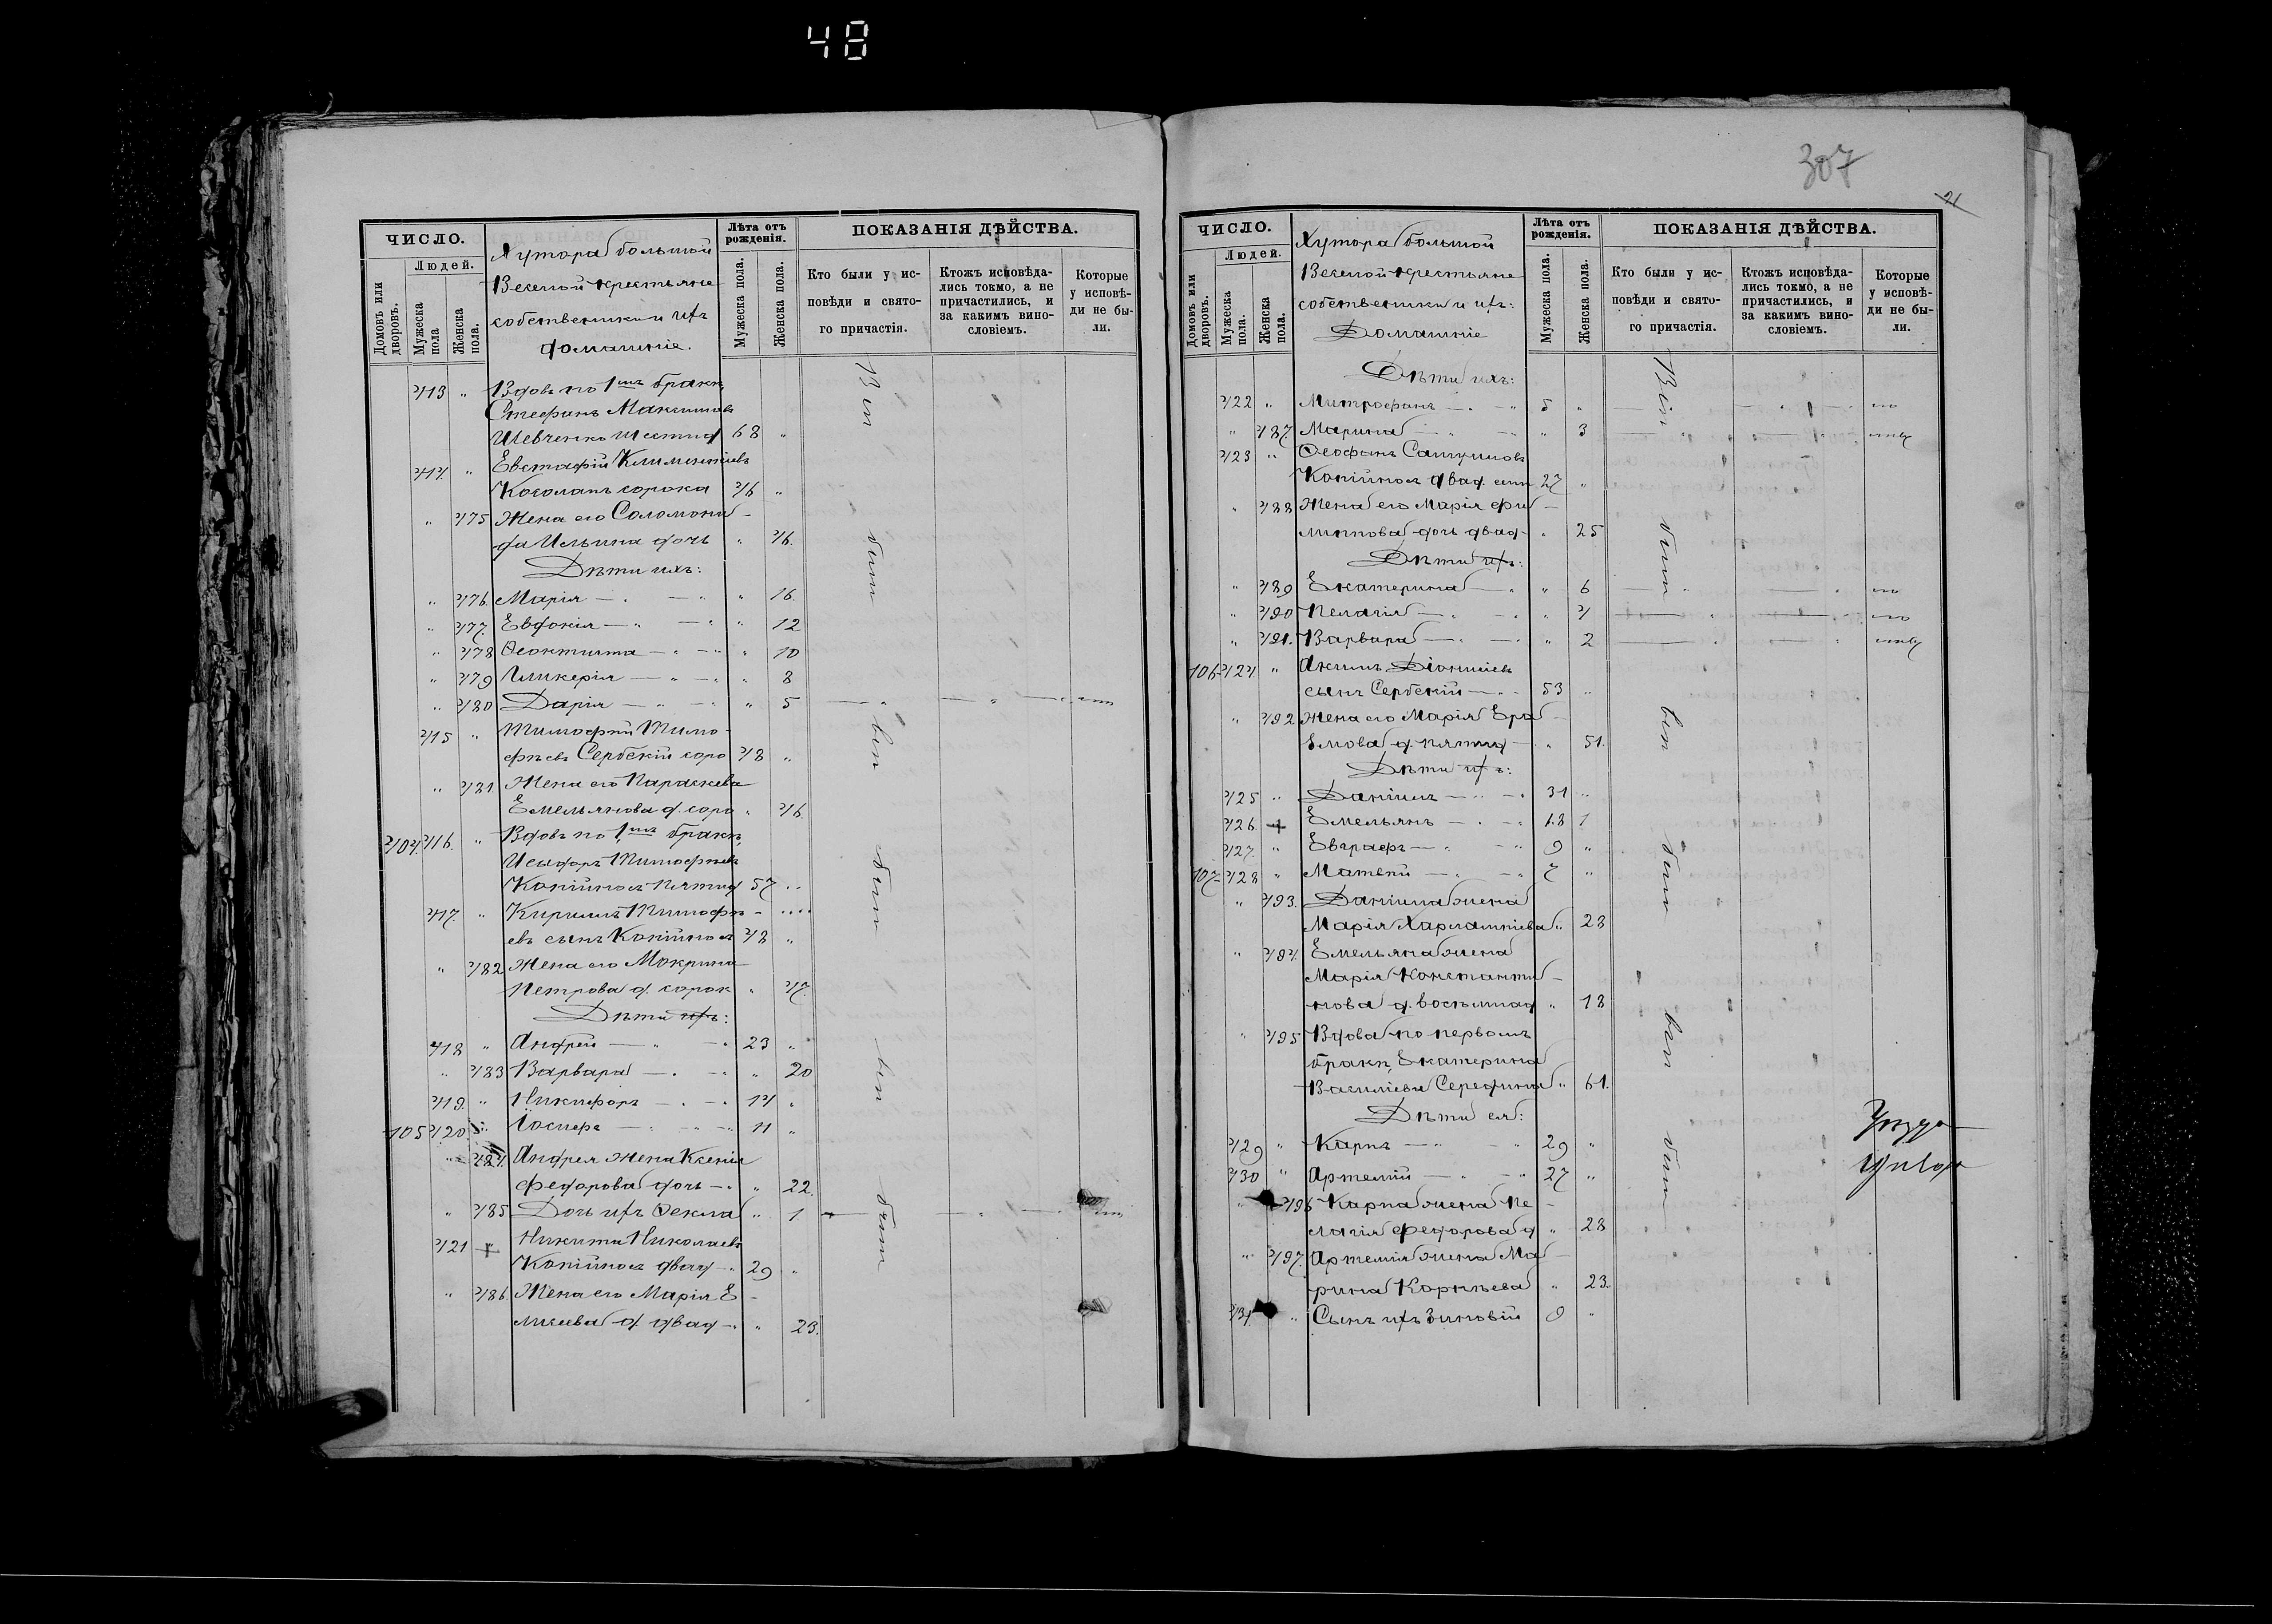 48
307
21
ЧИСЛО.
Людей.
Домовъ или дворовъ.
Мужеска пола
Женска пола.
Хутора большой
Веселой крестьяне
собственники ихъ
домашніе.
Лѣта отъ рожденія.
Мужеска пола.
Женска пола.
ПОКАЗАНІЯ ДѢЙСТВА.
Кто были у ис-
повѣди и свято-
го причастія.
Ктожъ исповѣда-
лись токмо, а не
причастились, и
за какимъ вино-
словіемъ.
Которые
у исповѣ-
ди не бы-
ли.
413 " Вдовъ по 1мъ бракѣ
Стефанъ Максимовъ
Шевченко шестид 68 "
414. " Евстафій Климентіевъ
Косолапъ сорока 46 "
" 475 Жена его Соломони-
да Ильина дочь " 46.
Дѣти ихъ:
" 476. Марія — " — " " 16.
" 477. Евдокія — " — " " 12
" 478 Ѳеоктиста — " — " " 10
" 479 Гликерія — " — " " 8
" 480 Дарія — " — " " 5
415 " Тимофей Тимо-
фѣевъ Сербскій соро 48 "
" 481 Жена его Параскева
Емельянова д. соро " 46
104. 416. " Вдовъ по 1мъ бракѣ
Исидоръ Тимофѣевъ
Копійпол пятид 57 "
417. " Кириллъ Тимофѣ-
евъ сынъ Копійпол 48 "
" 482 Жена его Мокрина
Петрова д. сорок " 47.
Дѣти ихъ:
418 " Андрей — " — " 23 "
" 483 Варвара — " — " " 20
419. " Никифоръ — " — " 14 "
105 420 " Іосифъ — " — " 11 "
" 484. Андрея жена Ксенія
Федорова дочь — " " 22.
" 485 Дочь ихъ Ѳекла " 1
421 + Никита Николаевъ
Копійпол двад — " 29 "
" 486. Жена его Марія Е-
лисеева д двад — " " 23.
Вси были вси были вси были
ЧИСЛО.
Людей.
Домовъ или дворовъ.
Мужеска пола.
Женска пола.
Хутора большой
Веселой крестьяне
собственники и ихъ:
Домашніе
Лѣта отъ рожденія.
Мужеска пола.
Женска пола.
ПОКАЗАНІЯ ДѢЙСТВА.
Кто были у ис-
повѣди и свято-
го причастія.
Ктожъ исповѣда-
лись токмо, а не
причастились, и
за какимъ вино-
словіемъ.
Которые
у исповѣ-
ди не бы-
ли.
Дѣти ихъ:
422 " Митрофанъ — " — " 5 "
" 487. Марина — " — " " 3
423 " Ѳеофанъ
Копійпол двад. сем 27 "
" 488 Жена его Марія Фи-
липпова дочь двад " 25
Дѣти ихъ:
" 489 Екатерина — " " 6
" 490 Пелагія — " — " " 4
" 491. Варвара — " — " " 2
106 424 " Акимъ Діонисіев
сынъ Сербскій — " 53 "
" 492 Жена его Марія
д. пятид — " 51.
Дѣти ихъ:
425 " Даніилъ — " — " 31 "
426 + Емельянъ — " — " 18 1
427. " Евграфъ — " — " 9 "
107 428 " Матвей — " — " 7 "
" 493. Даніила жена
Марія Харлампіева " 28
" 494. Емельяна жена
Марія Константи-
нова д. восемнад " 18
" 495 Вдова по первомъ
бракѣ Екатерина
Василіева Середина " 61.
Дѣти ея:
429 " Карпъ — " — " 29 "
430 " Артемій — " — " 27 "
" 496 Карпа жена Пе-
лагія Федорова д " 28
" 497. Артемія жена Ма-
рина Корнѣева " 23.
431. " Сынъ ихъ Зиновій 9 "
Вси были вси были вси были